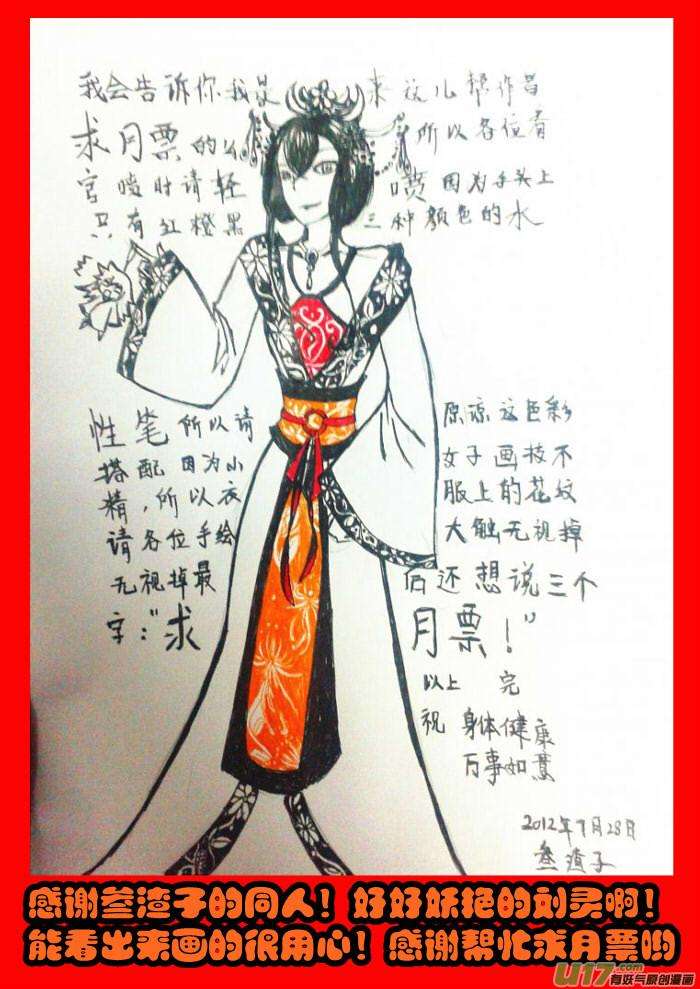 我会告诉你我是 来这儿帮作者
求月票的么 所以各位看
官喷时请轻 喷因为手头上
只有红橙黑 三种颜色的水
性笔所以请 原谅这色彩
搭配因为小 女子画技不
精,所以衣 服上的花纹
请各位手绘 大触无视掉
无视掉最 后还想说三个
字:"求 月票!"
以上 完
祝 身体健康
万事如意
2012年7月28日
叁渣子
感谢叁渣子的同人！好好妖艳的刘灵啊！
能看出来画的很用心！感谢帮忙求月票哟
U17.com
有妖气原创漫画